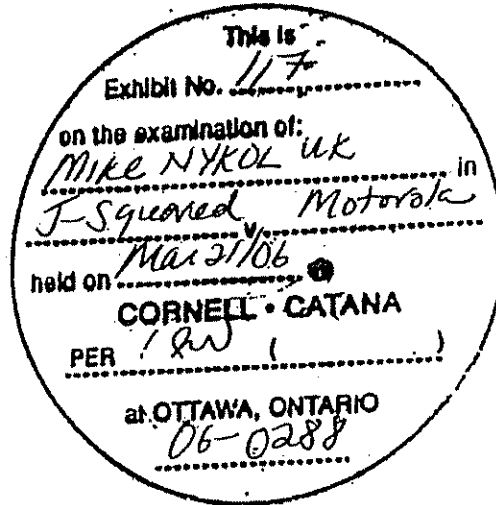 This is
Exhibit No. 117
on the examination of:
Mike NYKOLUK
in
J-Squared v Motorola
held on Mar 21/06
CORNELL • CATANA
PER ( )
at OTTAWA, ONTARIO
06-0288